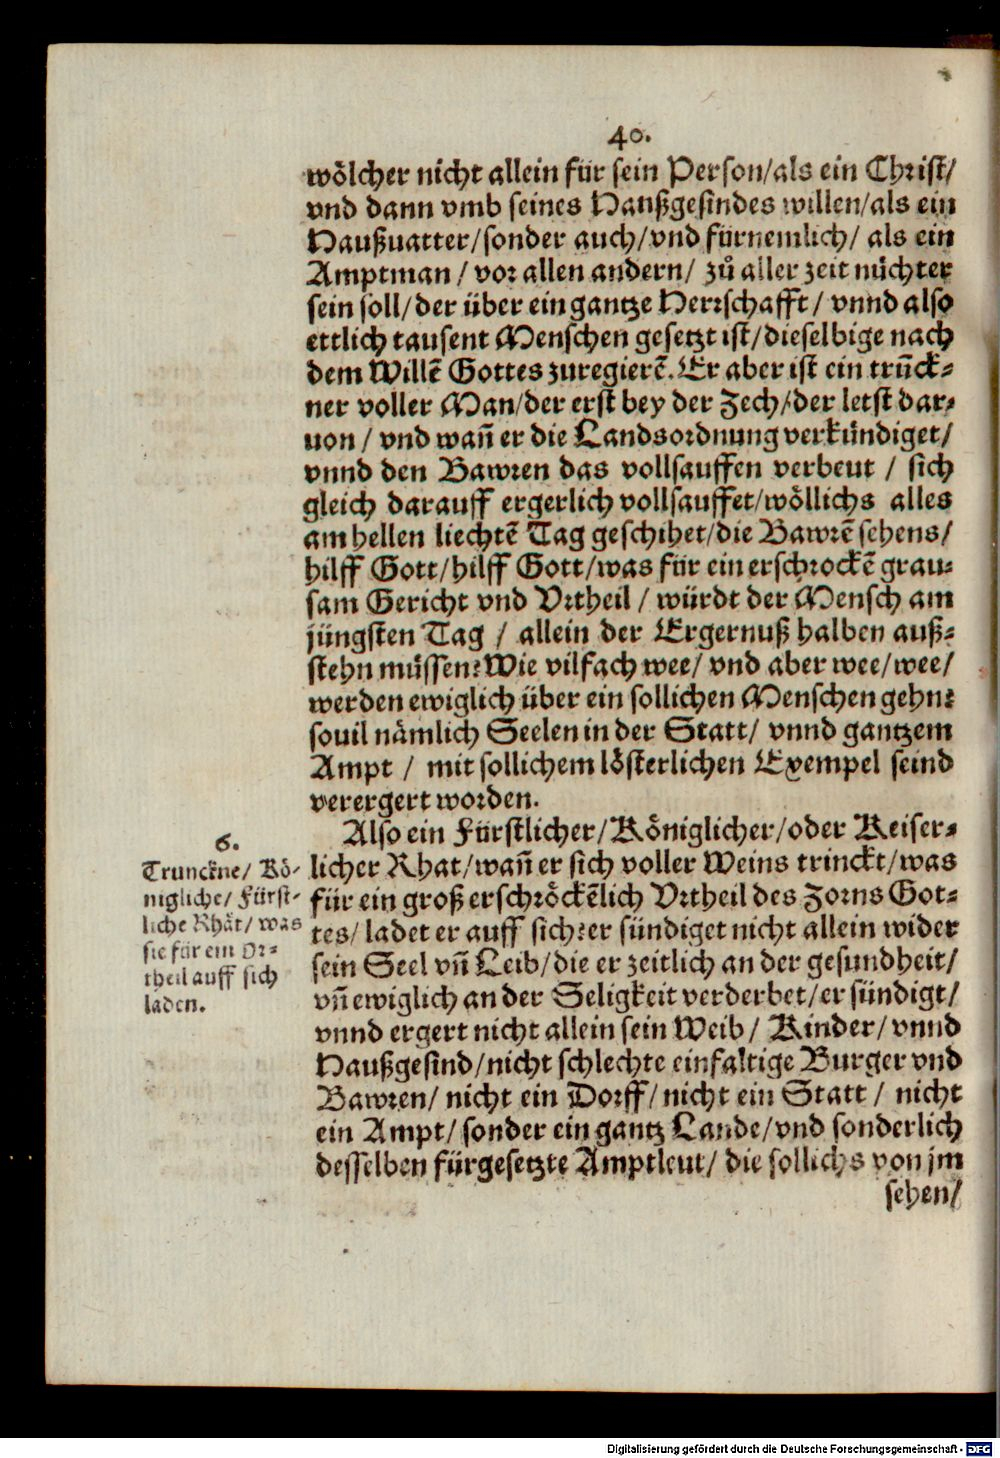 40.
wölcher nicht allein für sein Person/als ein Christ/
vnd dann vmb seines Haußgesindes willen/als ein
Haußuatter/sonder auch/vnd fürnemlich/ als ein
Amptman / vor allen andern/ zů aller zeit nüchter
sein soll/der über ein gantze Herrschafft/ vnnd also
ettlich tausent Menschen gesetzt ist/dieselbige nach
dem Willẽ Gottes zuregierẽ. Er aber ist ein trũck=
ner voller Man/der erst bey der Zech/der letst dar=
uon / vnd wañ er die Landsordnung verkündiget/
vnnd den Bawren das vollsauffen verbeut / sich
gleich darauff ergerlich vollsauffet/wöllichs alles
am hellen liechtẽ Tag geschihet/die Bawrẽ sehens/
hilff Gott/hilff Gott/was für ein erschrockẽ grau=
sam Gericht vnd Vrtheil / würdt der Mensch am
jüngsten Tag / allein der Ergernuß halben auß=
stehn müssen? Wie vilfach wee/ vnd aber wee/wee/
werden ewiglich über ein sollichen Menschen gehn?
souil nämlich Seelen in der Statt/ vnnd gantzem
Ampt / mit sollichem lösterlichen Exempel seind
verergert worden.
Also ein Fürstlicher/Königlicher/oder Keiser=
licher Rhat/wañ er sich voller Weins trinckt/was
für ein groß erschröckẽlich Vrtheil des Zorns Got=
tes/ ladet er auff sich? er sündiget nicht allein wider
sein Seel vñ Leib/die er zeitlich an der gesundheit/
vñ ewiglich an der Seligkeit verderbet/er sündigt/
vnnd ergert nicht allein sein Weib/ Kinder/ vnnd
Haußgesind/nicht schlechte einfaltige Burger vnd
Bawren/ nicht ein Dorff/nicht ein Statt / nicht
ein Ampt/ sonder ein gantz Lande/vnd sonderlich
desselben fürgesetzte Amptleut/ die sollichs von jm
sehen/
6.
Trunckne/ Kö=
nigliche/ Fürst=
liche Rhät/ was
sie für ein Vr=
theil auff sich
laden.
Digitalisierung gefördert durch die Deutsche Forschungsgemeinschaft - DFG